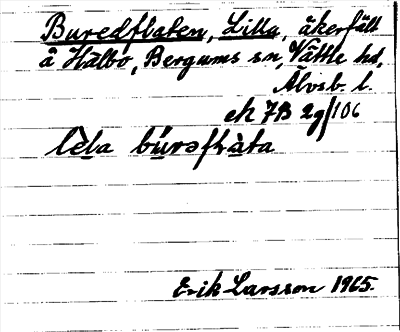 Buredflaten, Lilla, åkerfält
å Hälbo, Bergums sn, Vättle hd,
Älvsb. l.
ek 7B 2g/106
lèla bùrəfɫàta
Erik Larsson 1965.